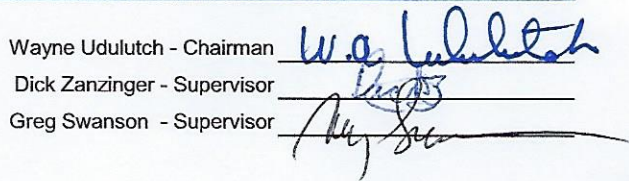 Wayne Udulutch - Chairman W.A Udulutch
Dick Zanzinger - Supervisor
Greg Swanson - Supervisor